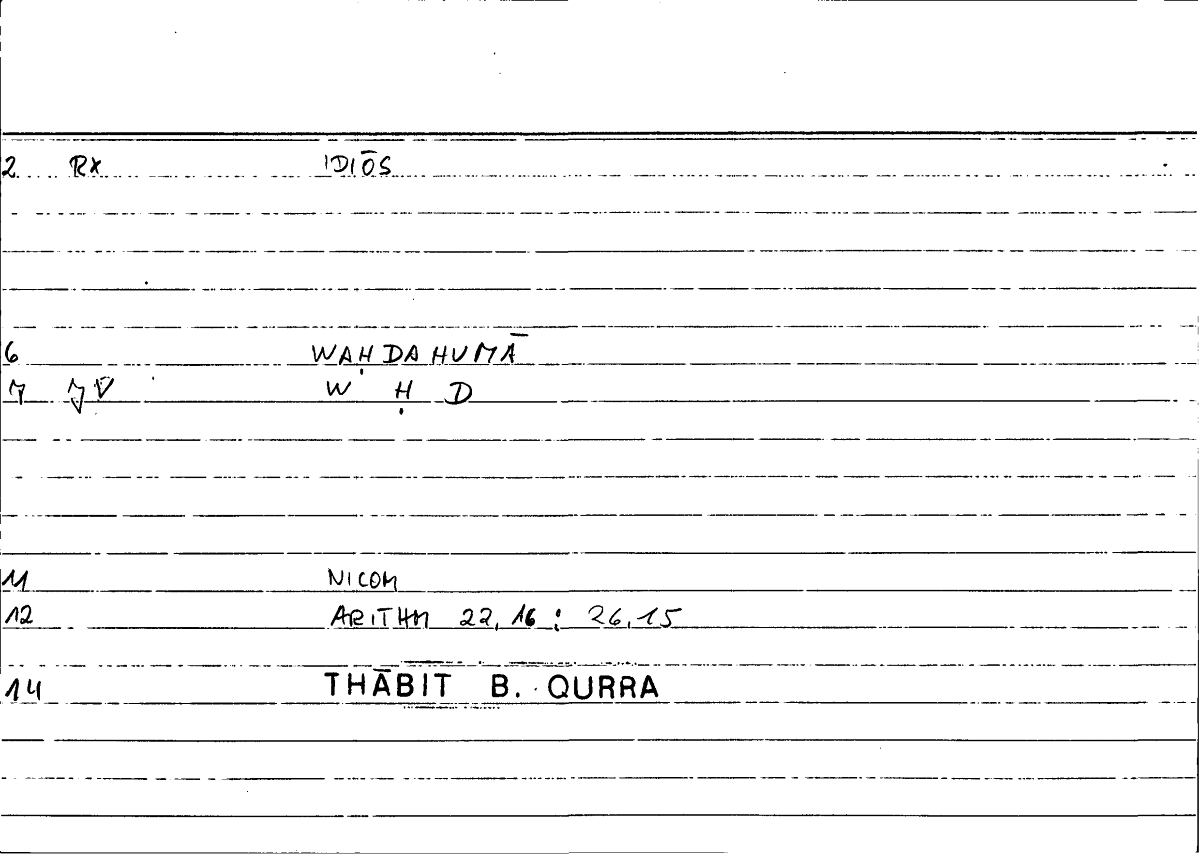 2 RX IDIŌS
6 WAḤDAHUMĀ
7 W Ḥ D
11 NICOM
12 ARITHM 22,16 : 26,15
14 THĀBIT B. QURRA